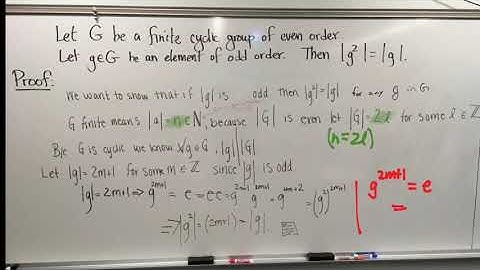 Let G be a finite cyclic group of even order.
Let g∈G be an element of odd order. Then |g²| = |g|.
Proof:
We want to show that if |g| is odd then |g²|=|g| for any g in G
G finite means |a|=n∈N, because |G| is even let |G|=2l for some l∈Z
(n=2l)
B/c G is cyclic we know ∀g∈G, |g| | |G|
Let |g|=2m+1 for some m∈Z since |g| is odd.
|g|=2m+1 ⇒ g^{2m+1} = e = ee = g^{2m+1} g^{2m+1} = g^{4m+2} = (g²)^{2m+1}
⇒ |g²| = (2m+1) = |g|.
g^{2m+1} = e
=